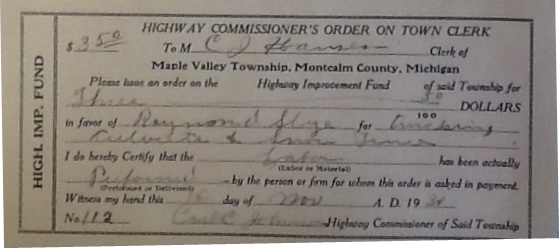 HIGH. IMP. FUND
HIGHWAY COMMISSIONER'S ORDER ON TOWN CLERK
$ 3 50 To M C J Hansen Clerk of
Maple Valley Township, Montcalm County, Michigan
Please issue an order on the Highway Improvement Fund of said Township for
Three 50/100 DOLLARS
in favor of Raymond for trucking
Culverts & Snow Fence
I do hereby Certify that the Labor has been actually
(Labor or Material)
Performed by the person or firm for whom this order is asked in payment.
(Performed or Delivered)
Witness my hand this day of Nov A. D. 19
No. 112 Carl C Highway Commissioner of Said Township